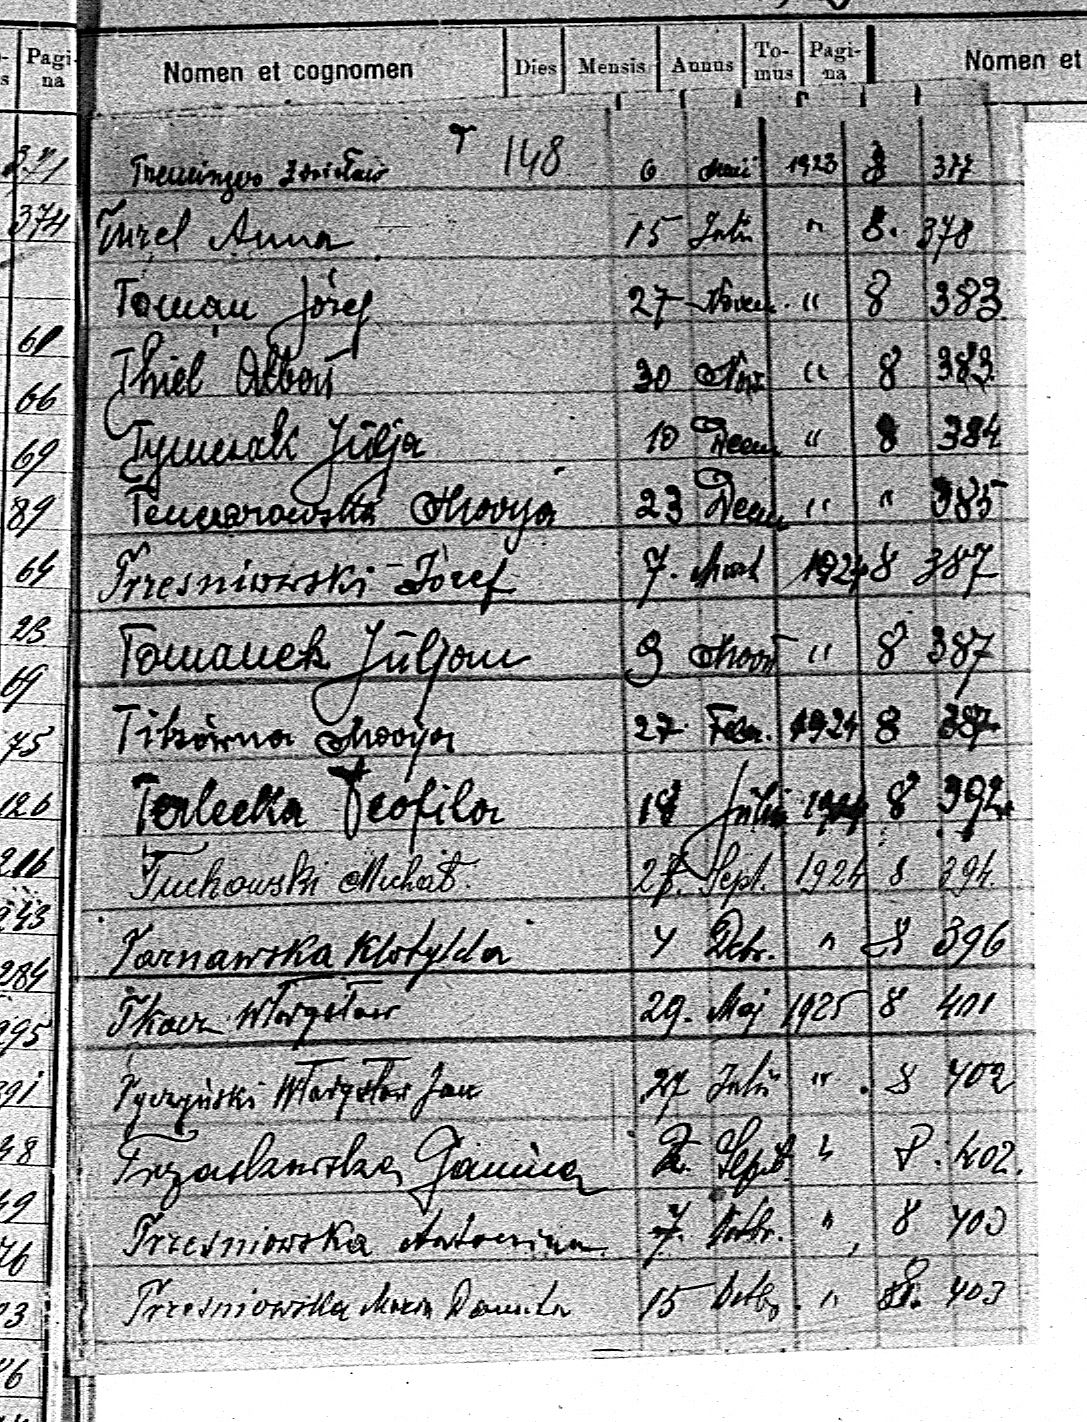 Pagi-na Nomen et cognomen Dies Mensis Annus To-mus Pagi-na Nomen et
T 148
6 Maii 1923 8 377
374 Turel Anna 15 Julii " 8. 378
Toman Józef 27 Novem. " 8 383
61
Thiel 30 Nov. " 8 383
66
Julja 10 Decem " 8 384
69
Marya 23 Decem " " 385
89
Trzesniowski Józef 7. Mart 1924 8 387
64
Tomanek Juljan 9 Mart " 8 387
23
69
Marya 27 Febr. 1924 8 387
75
Terlecka Teofila 18 Julii 1924 8 392
126
Tuchowski Michał. 27. Sept. 1924 8 394.
216
243
Tarnawska Klotylda 4 Octr. " 8 396
284
Tkacz Władysław 29. Maj 1925 8 401
295
Tyczyński Władysław Jan 27 Julii " 8 402
48
Janina 2. Sept. " 8. 402.
49
Trzesniowska Antonina 7. Octbr. " 8 403
76
Trzesniowska Maria Danuta 15 Octbr. " 8. 403